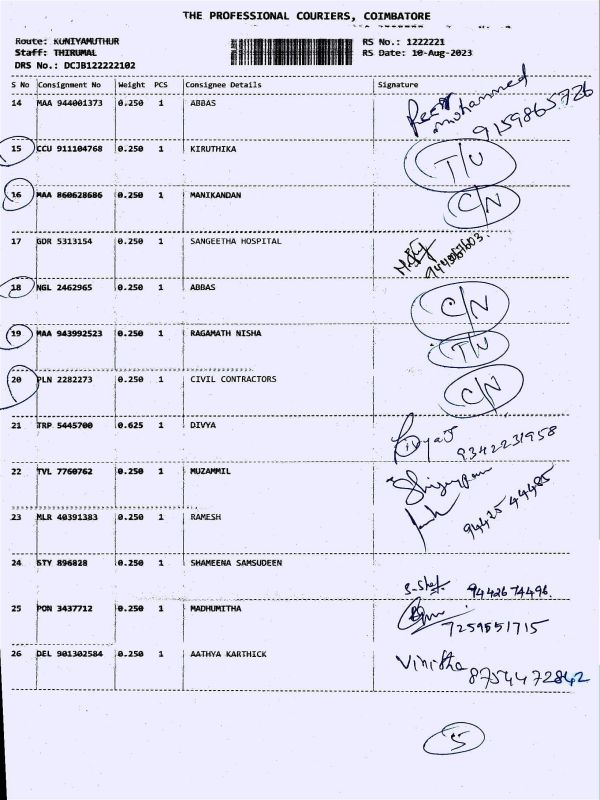 THE PROFESSIONAL COURIERS, COIMBATORE
Route: KUNIYAMUTHUR
Staff: THIRUMAL
DRS No.: DCJB122222102
RS No.: 1222221
RS Date: 10-Aug-2023
S No Consignment No Weight PCS Consignee Details Signature
14 MAA 944001373 0.250 1 ABBAS mohammed 9159865726
15 CCU 911104768 0.250 1 KIRUTHIKA T/U
16 MAA 860628686 0.250 1 MANIKANDAN C/N
17 GDR 5313154 0.250 1 SANGEETHA HOSPITAL
18 NGL 2462965 0.250 1 ABBAS C/N
19 MAA 943992523 0.250 1 RAGAMATH NISHA T/U
20 PLN 2282273 0.250 1 CIVIL CONTRACTORS C/N
21 TRP 5445700 0.625 1 DIVYA 9342231958
22 TVL 7760762 0.250 1 MUZAMMIL
23 MLR 40391383 0.250 1 RAMESH 9442544485
24 STY 896828 0.250 1 SHAMEENA SAMSUDEEN 9442674496
25 PON 3437712 0.250 1 MADHUMITHA 7259551715
26 DEL 901302584 0.250 1 AATHYA KARTHICK Vinitha 8754472842
5